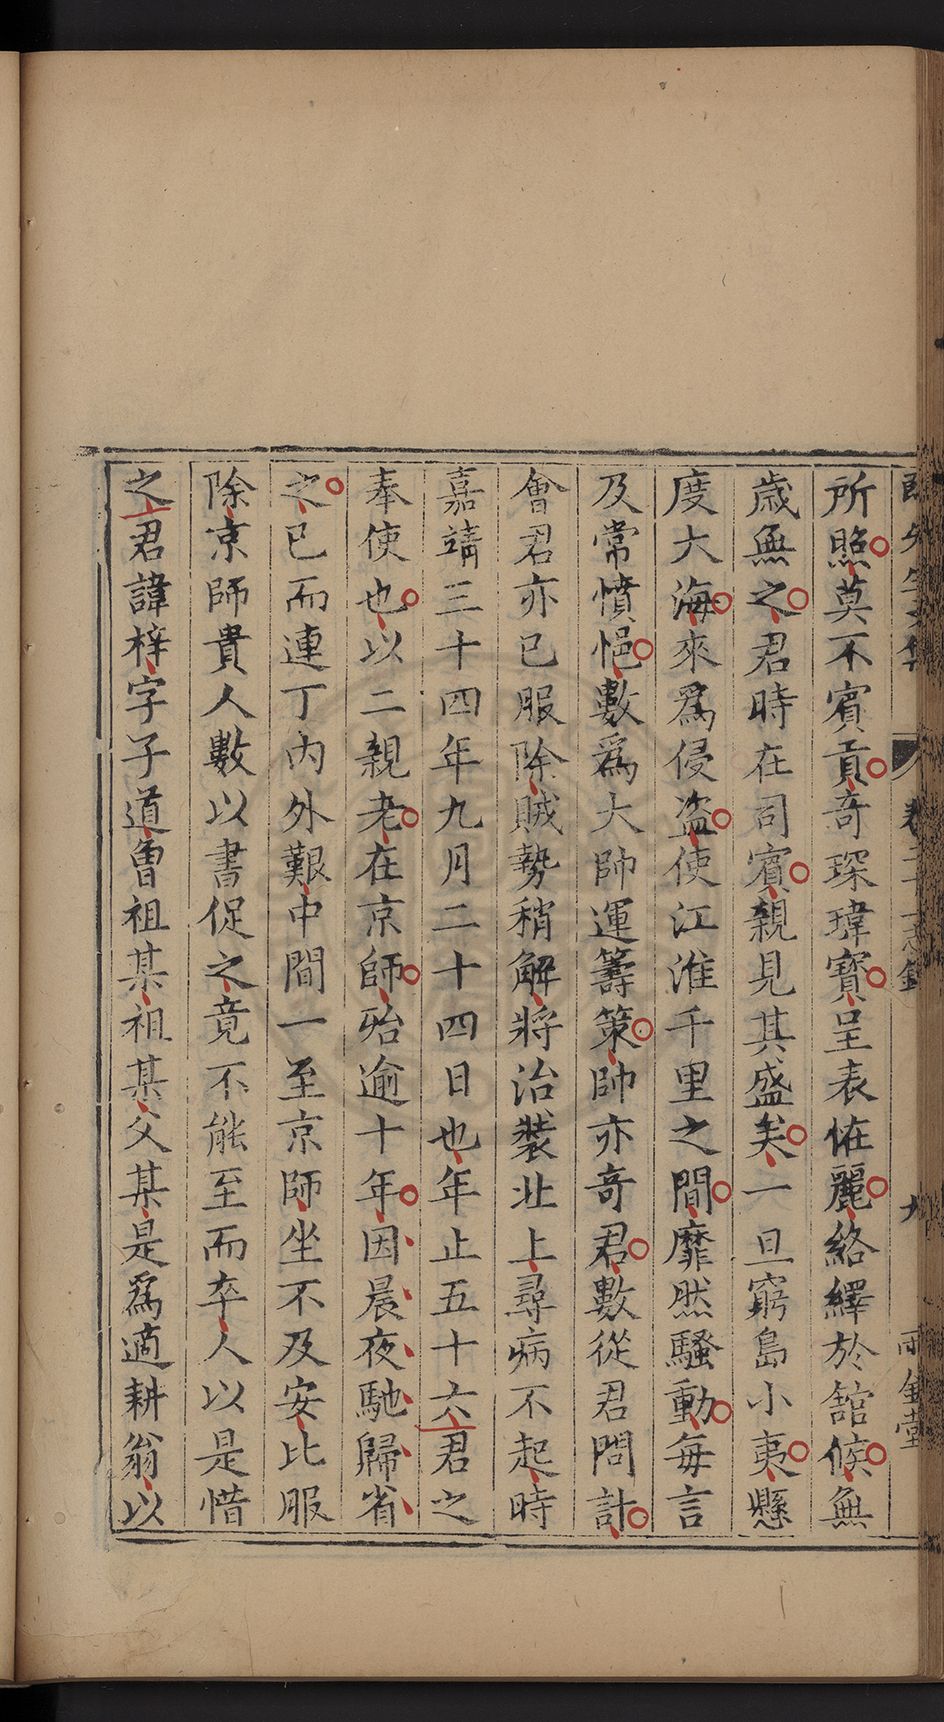 卷二十
所照莫不賓貢奇琛瑋寶呈表侏麗絡繹於舘候無
歲無之君時在司賓親見其盛矣一旦窮島小夷懸
度大海來爲侵盗使江淮千里之間靡然騷動每言
及常憤悒數爲大帥運籌策帥亦奇君數從君問計
會君亦已服除賊勢稍解將治裝北上尋病不起時
嘉靖三十四年九月二十四日也年止五十六君之
奉使也以二親老在京師殆逾十年因晨夜馳歸省
之已而連丁内外艱中間一至京師坐不及安比服
除京師貴人數以書促之竟不能至而卒人以是惜
之君諱梓字子道曾祖某祖某父某是爲適耕翁以